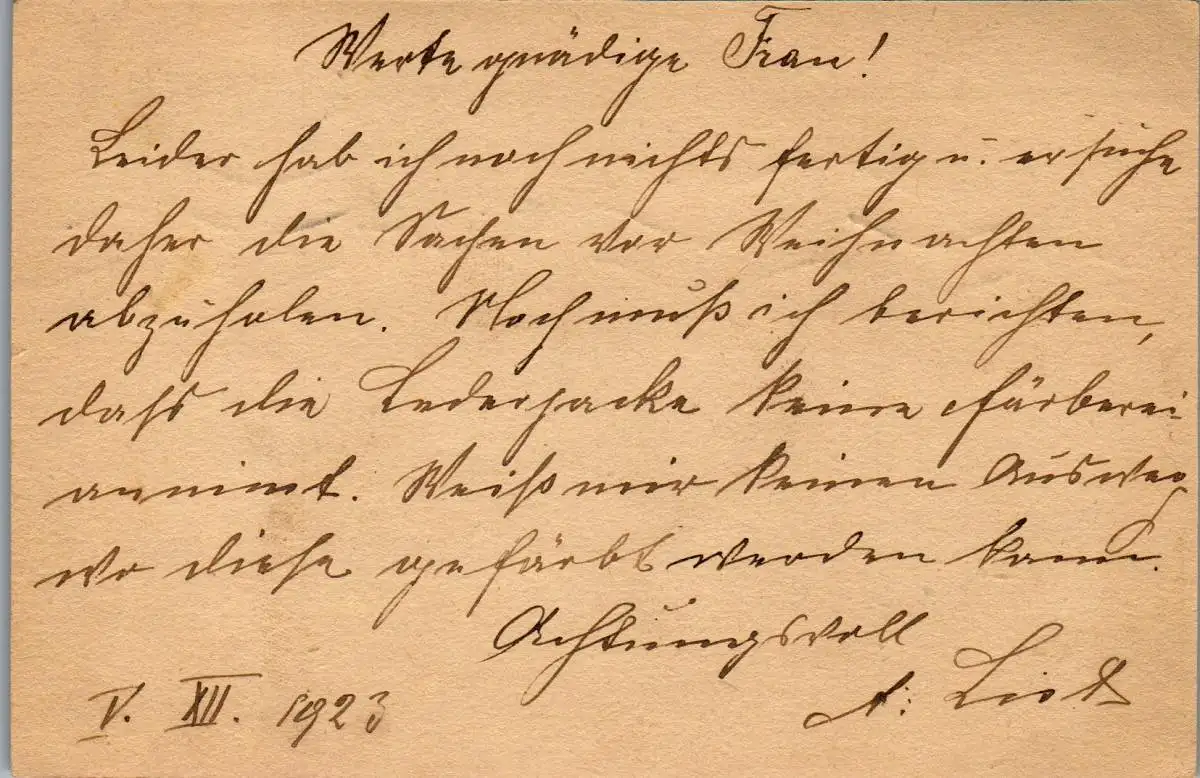 Werte gnädige Frau!
Leider hab ich noch nichts fertig u. ersuche
daher die Sachen vor Weihnachten
abzuholen. Noch muß ich berichten,
dass die Lederjacke keine Färberei
annimt. Weiß mir keinen Ausweg
wo diese gefärbt werden kann.
Achtungsvoll
V. XII. 1923